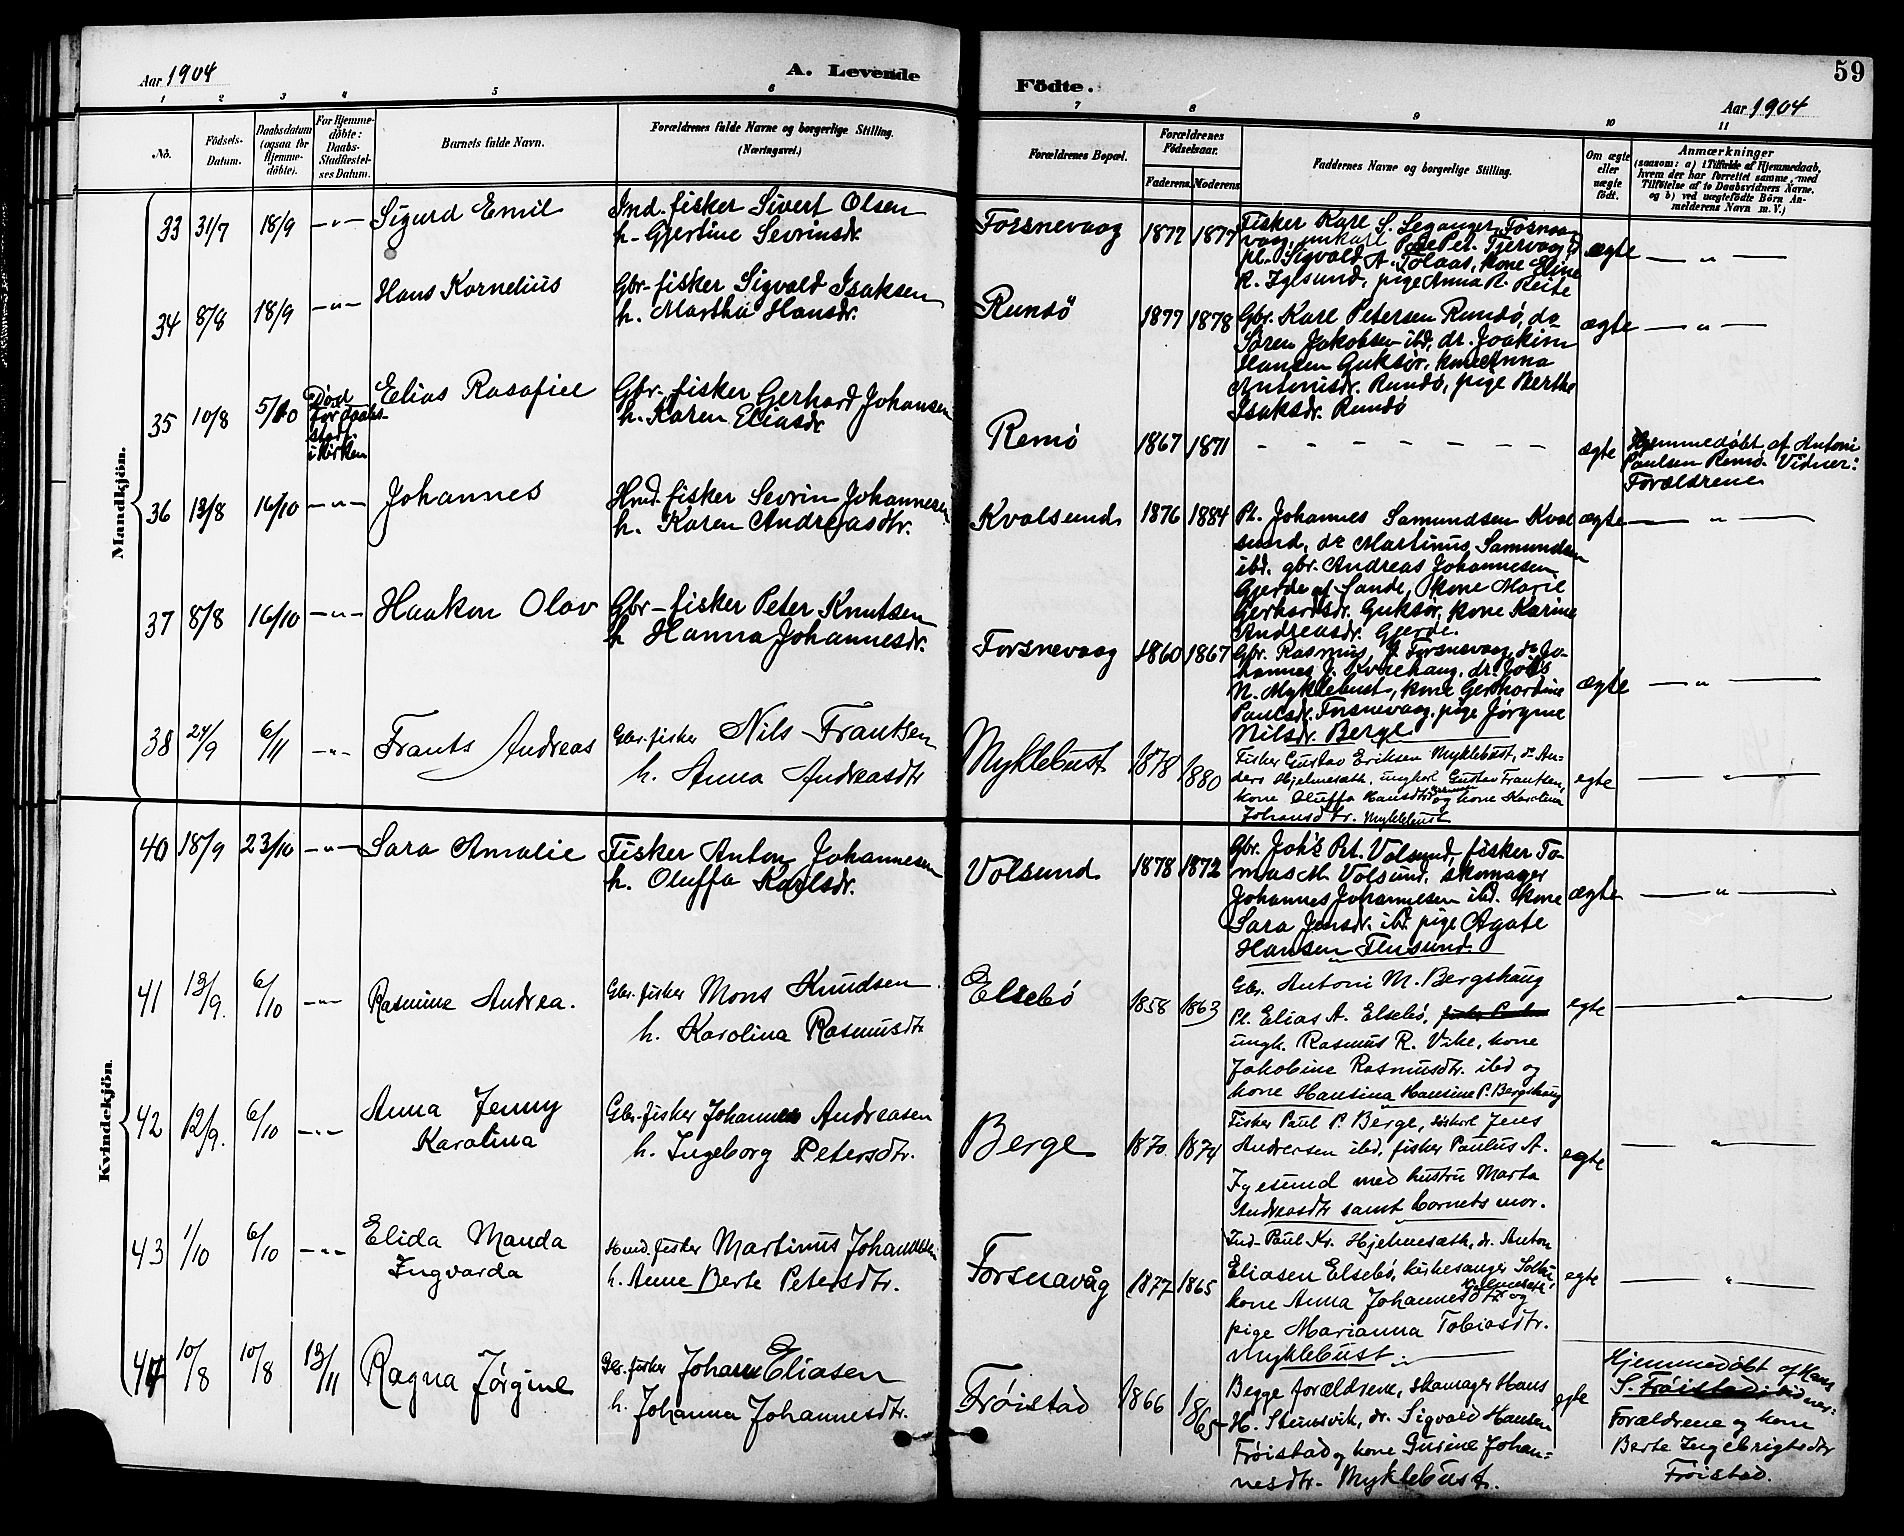 Aar 1904
A. Levende
Födte.
59
Aar 1904
1 2 3 4 5 6 7 8 9 10 11
No.
Födsels-
Datum.
Daabsdatum
(ogsaa for
Hjemme-
døbte).
For Hjemme-
døbte:
Daabs-
Stadfæstel-
ses Datum.
Barnets fulde Navn.
Forældrenes fulde Navne og borgerlige Stilling.
(Næringsvei.)
Forældrenes Bopæl.
Forældrenes
Födselsaar.
Faderens.
Moderens.
Faddernes Navne og borgerlig Stilling.
Om ægte
eller
uægte
født.
Anmærkninger
(saasom: a) i Tilfælde af Hjemmedaab,
hvem der har forrettet samme, med
Tilføielse af to Daabsvidners Navne.
og b) ved uægtefødte Börn An-
melderens Navn m. V.)
Mandkjön.
33 31/7 18/9 -"- Sigurd Emil
Ind. fisker Sivert Olsen
h. Gjertine Sevrinsdr.
Forsnevaag 1877 1877
Fisker Karl S. Leganger, Fosna-
vaag, unkarl Peder Pet. Tjervaag
pl. Sigvald A. Tolaas, kone Eline
R. Igesund, pige Anna R. Reite
ægte — " —
34 8/8 18/9 -"- Hans Kornelius
Gbr-fisker Sigvald Isaksen
h. Martha Hansdr.
Rundö 1877 1878
Gbr. Karl Petersen Rundø, do
Søren Jakobsen ibd, dr. Joakim
Hansen Guksør, kone Anna
Antonisdr. Rundø, pige Berthe
Isaksdr. Rundø
ægte — " —
35 10/8 5/10 Død
før daabs-
stadf.
i kirken
Elias Rasafiel
Gbr. fisker Gerhard Johansen
h. Karen Eliasdr
Remø 1867 1871
- - - - - - - -
ægte
Hjemmedøbt af Antoni
Paulsen Remø. Vidner:
Forældrene
36 13/8 16/10 -"- Johannes
Hmd. fisker Sevrin Johannesen
h. Karen Andreasdtr.
Kvalsund 1876 1884
Pl. Johannes Samundsen Kval
sund, do Martinus Samundsen
ibd. gbr. Andreas Johannesen
Gjerde af Sande, kone Marie
Gerhardsdr. Guksør, kone Karine
Andreasdr. Gjerde.
ægte — " —
37 8/8 16/10 -"- Haakon Olav
Gbr-fisker Peter Knutsen
h Hanna Johannesdr.
Forsnevaag 1860 1867
Gbr. Rasmus J. Forsnevaag, do Jo-
hannes J. Kvalhaug, dr. Joh's
N. Myklebust, kone Gerhardine
Paulsdr. Forsnevaag, pige Jørgine
Nilsdr. Berge
ægte — " —
38 24/9 6/11 -"- Frants Andreas
Gbr. fisker Nils Frantsen
h. Anna Andreasdtr
Myklebust 1878 1880
Fisker Gustav Eriksen Myklebust, do An-
ders Hjelmesæth, ungkarl Gustav Frantsen,
kone Oluffa Hansdtr og kone Karolina
Johansdtr. Myklebust
egte — " —
Kvindekjön.
40 18/9 23/10 -"- Sara Amalie
Fisker Anton Johannesen
h. Oluffa Karlsdr.
Volsund 1878 1872
Gbr. Joh's Pet. Volsund, fisker To-
mas M. Volsund, skomager
Johannes Johannesen ibd. kone
Sara Jensdr. ibd. pige Agate
Hansen Flusund.
ægte — " —
41 13/9. 6/10 -"- Rasmine Andrea.
Gbr. fisker Mons Knudsen
h. Karolina Rasmusdtr
Elsebø 1858 1863
Gbr. Antoni M. Bergshaug
Pl. Elias A. Elsebø,
ungk. Rasmus R. Vike, kone
Jakobine Rasmusdtr. ibd og
kone Hansina Hansine P. Bergshaug
egte — " —
42 12/9. 6/10 -"- Anna Jenny
Karolina
Gbr. fisker Johannes Andreasen
h. Ingeborg Petersdtr.
Berge 1870 1874
Fisker Paul P. Berge, Jens
Andersen ibd, fisker Paulus A.
Igesund med hustru Marta
Andreasdtr samt barnets mor.
egte — " —
43 1/10 6/10 -"- Elida Manda
Ingvarda
Hmd. fisker Martinus Johannesen
h. Anne Berte Petersdtr.
Forsnavåg 1877 1865
Ind. Paul Kr. Hjelmesæth, dr. Anton
Eliasen Elsebø, kirkesanger
kone Anna Johannesdtr Hjelmesæth og
pige Marianna Tobiasdtr.
Myklebust.
egte — " —
44 10/8 10/8 13/11 Ragna Jørgine
Gbr. fisker Johan Eliasen
h. Johanna Johannesdtr.
Frøistad 1866 1865
Begge forældrene, skomager Hans
H. Stensvik, dr. Sigvald Hansen
Frøistad og kone Gurine Johan-
nesdtr. Myklebust.
egte
Hjemmedøbt af Hans
S. Frøistad. Vidner:
Forældrene og kone
Berte Ingebrigtsdtr
Frøistad.